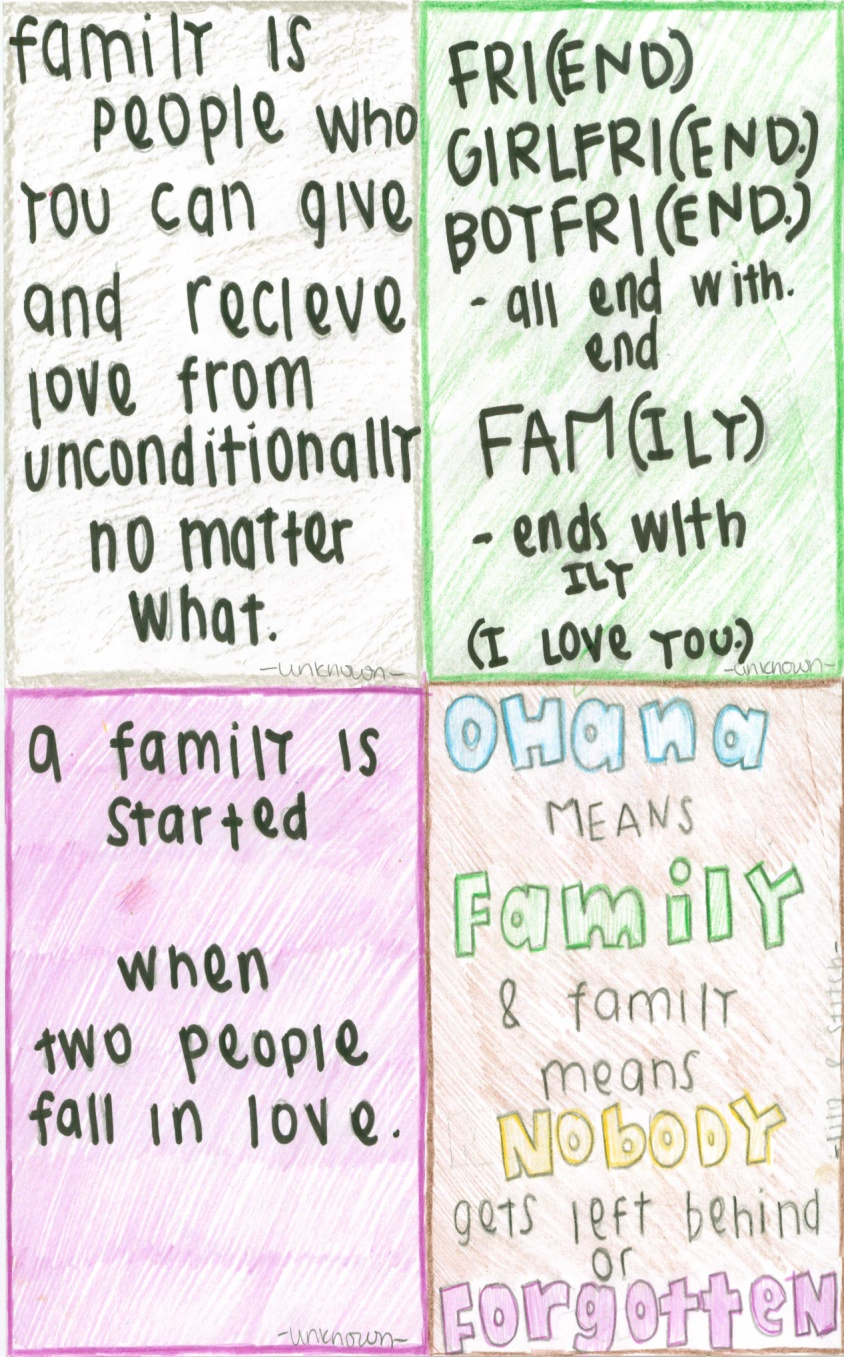 family is
people who
you can give
and recieve
love from
unconditionally
no matter
what.
-unknown-
FRI(END)
GIRLFRI(END.)
BOYFRI(END.)
- all end with.
end
FAM(ILY)
- ends with
ILY
(I LOVE YOU.)
-unknown-
a family is
started
when
two people
fall in love.
-unknown-
OHana
MEANS
FamilY
& family
means
NoboDY
gets left behind
or
ForgotteN
-Lilo & Stitch-